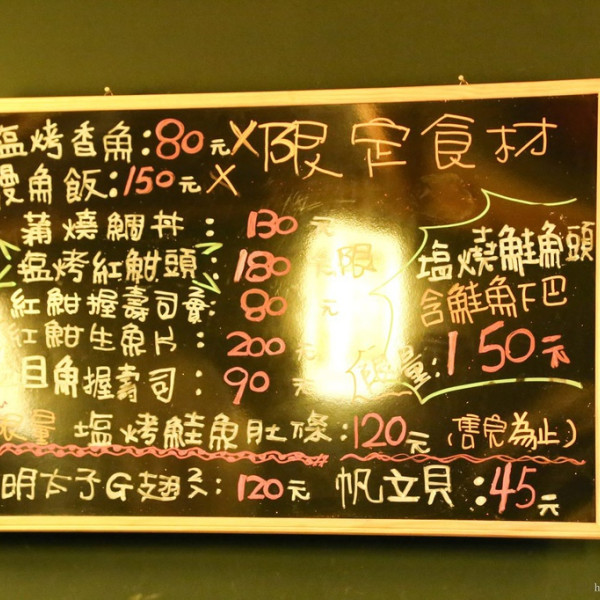 塩烤香魚:80元 X 限定食材
鰻魚飯:150元 X
蒲燒鯛丼:130元
塩烤紅魽頭:180元 限
紅魽握壽司:80元
紅魽生魚片:200元
目魚握壽司:90元
塩燒鮭魚頭
含鮭魚下巴
限量:150元
限量 塩烤鮭魚肚條:120元(售完為止)
明太子G翅:120元 帆立貝:45元